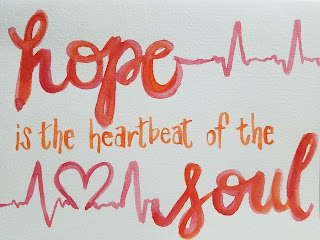 hope
is the heartbeat of the
soul